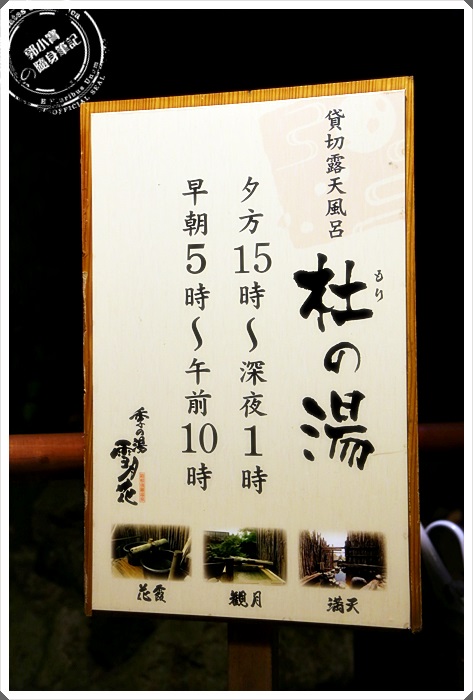 貸切露天風呂
もり
杜の湯
夕方15時〜深夜1時
早朝5時〜午前10時
季の湯
雪月花
満天
観月
花霞
郭小寶
の隨身筆記